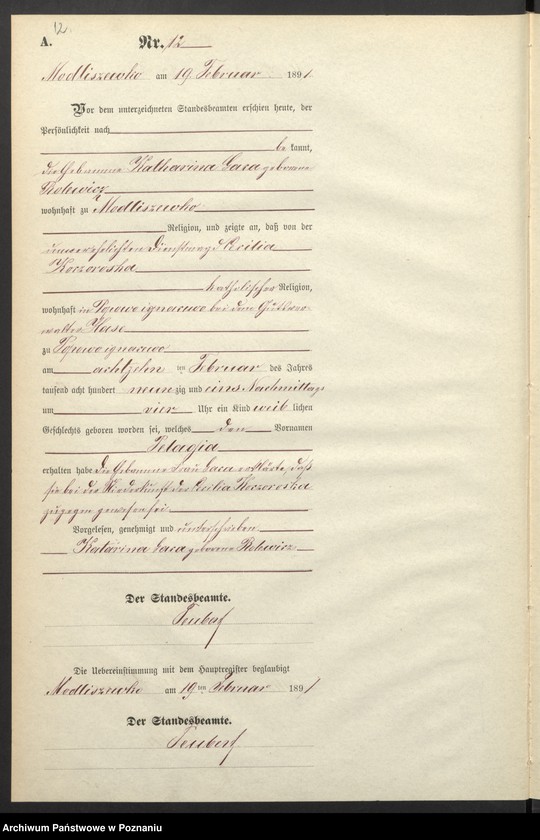 12.
A. Nr. 12
Modliszewko am 19 Februar 1891
Vor dem unterzeichneten Standesbeamten erschien heute, der
Persönlichkeit nach
be kannt,
die Hebamme Katharina Gaca geborene
wohnhaft zu Modliszewko
Religion, und zeigte an, daß von der
unverehelichten Dienstmagd Cecilia
Koczorowska
katholischer Religion,
wohnhaft in bei dem Gutsver-
walter Hase
zu
am achtzehn ten Februar des Jahres
tausend acht hundert neun zig und eins Nachmittags
um vier Uhr ein Kind weib lichen
Geschlechts geboren worden sei, welches den Vornamen
Pelagia
erhalten habe Die Hebamme Frau Gaca erklärte, daß
sie bei der Niederkunft der Cecilia Koczorowska
zugegen gewesen sei
Vorgelesen, genehmigt und unterschrieben
Katarina Gaca geborene
Der Standesbeamte.
Die Uebereinstimmung mit dem Hauptregister beglaubigt
Modliszewko am 19 ten Februar 1891
Der Standesbeamte.
Archiwum Państwowe w Poznaniu